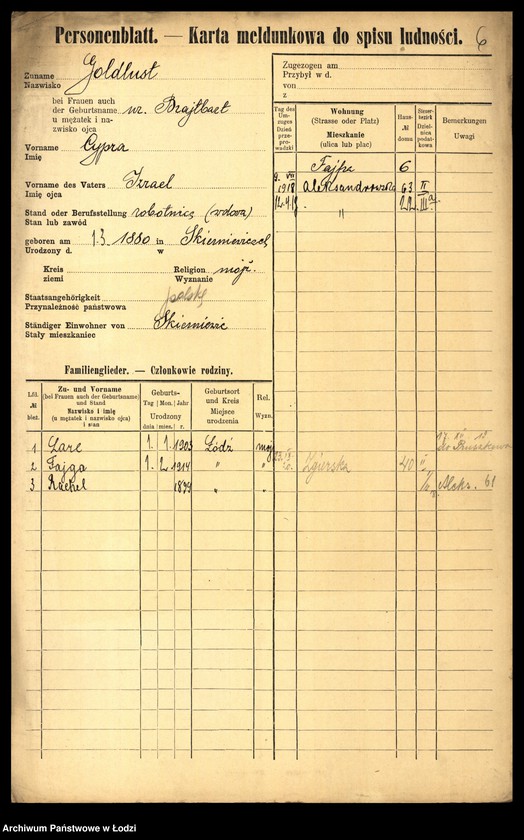 Personenblatt. — Karta meldunkowa do spisu ludności. 6
Zuname Goldlust
Nazwisko
bei Frauen auch
der Geburtsname
u mężatek i na-
zwisko ojca
Vorname Cypra
Imię
Vorname des Vaters Izrael
Imię ojca
Stand oder Berufsstellung robotnica (wdowa)
Stan lub zawód
geboren am 1.3 1880 in Skierniewicach
Urodzony d. w
Kreis Religion mojż.
ziemi Wyznanie
Staatsangehörigkeit polska
Przynależność państwowa
Ständiger Einwohner von Skierniewic
Stały mieszkaniec
Zugezogen am
Przybył w d.
von
z
Tag des Um-zuges Dzień prze-prowadzki
Wohnung
(Strasse oder Platz)
Mieszkanie
(ulica lub plac)
Haus-
№
domu
Steuer-bezirk Dzielnica podatkowa
Bemerkungen
Uwagi
Fajfra 6
9. VII 1918 Aleksandrowska 63 II
" 22 IIIa
Familienglieder. — Członkowie rodziny.
Lfd.
№
bież.
Zu- und Vorname
(bei Frauen auch der Geburtsname)
und Stand
Nazwisko i imię
(u mężatek i nazwisko ojca)
i stan
Geburts-
Tag Mon. Jahr
Urodzony
dnia mies. r.
Geburtsort
und Kreis
Miejsce
urodzenia
Rel.
Wyzn.
1 1. 1. 1903 Łódź moj
2 Fajga 1. 2. 1914 " "
Zgierska 40 II
3 Ruchel " "
Aleks. 61
Archiwum Państwowe w Łodzi